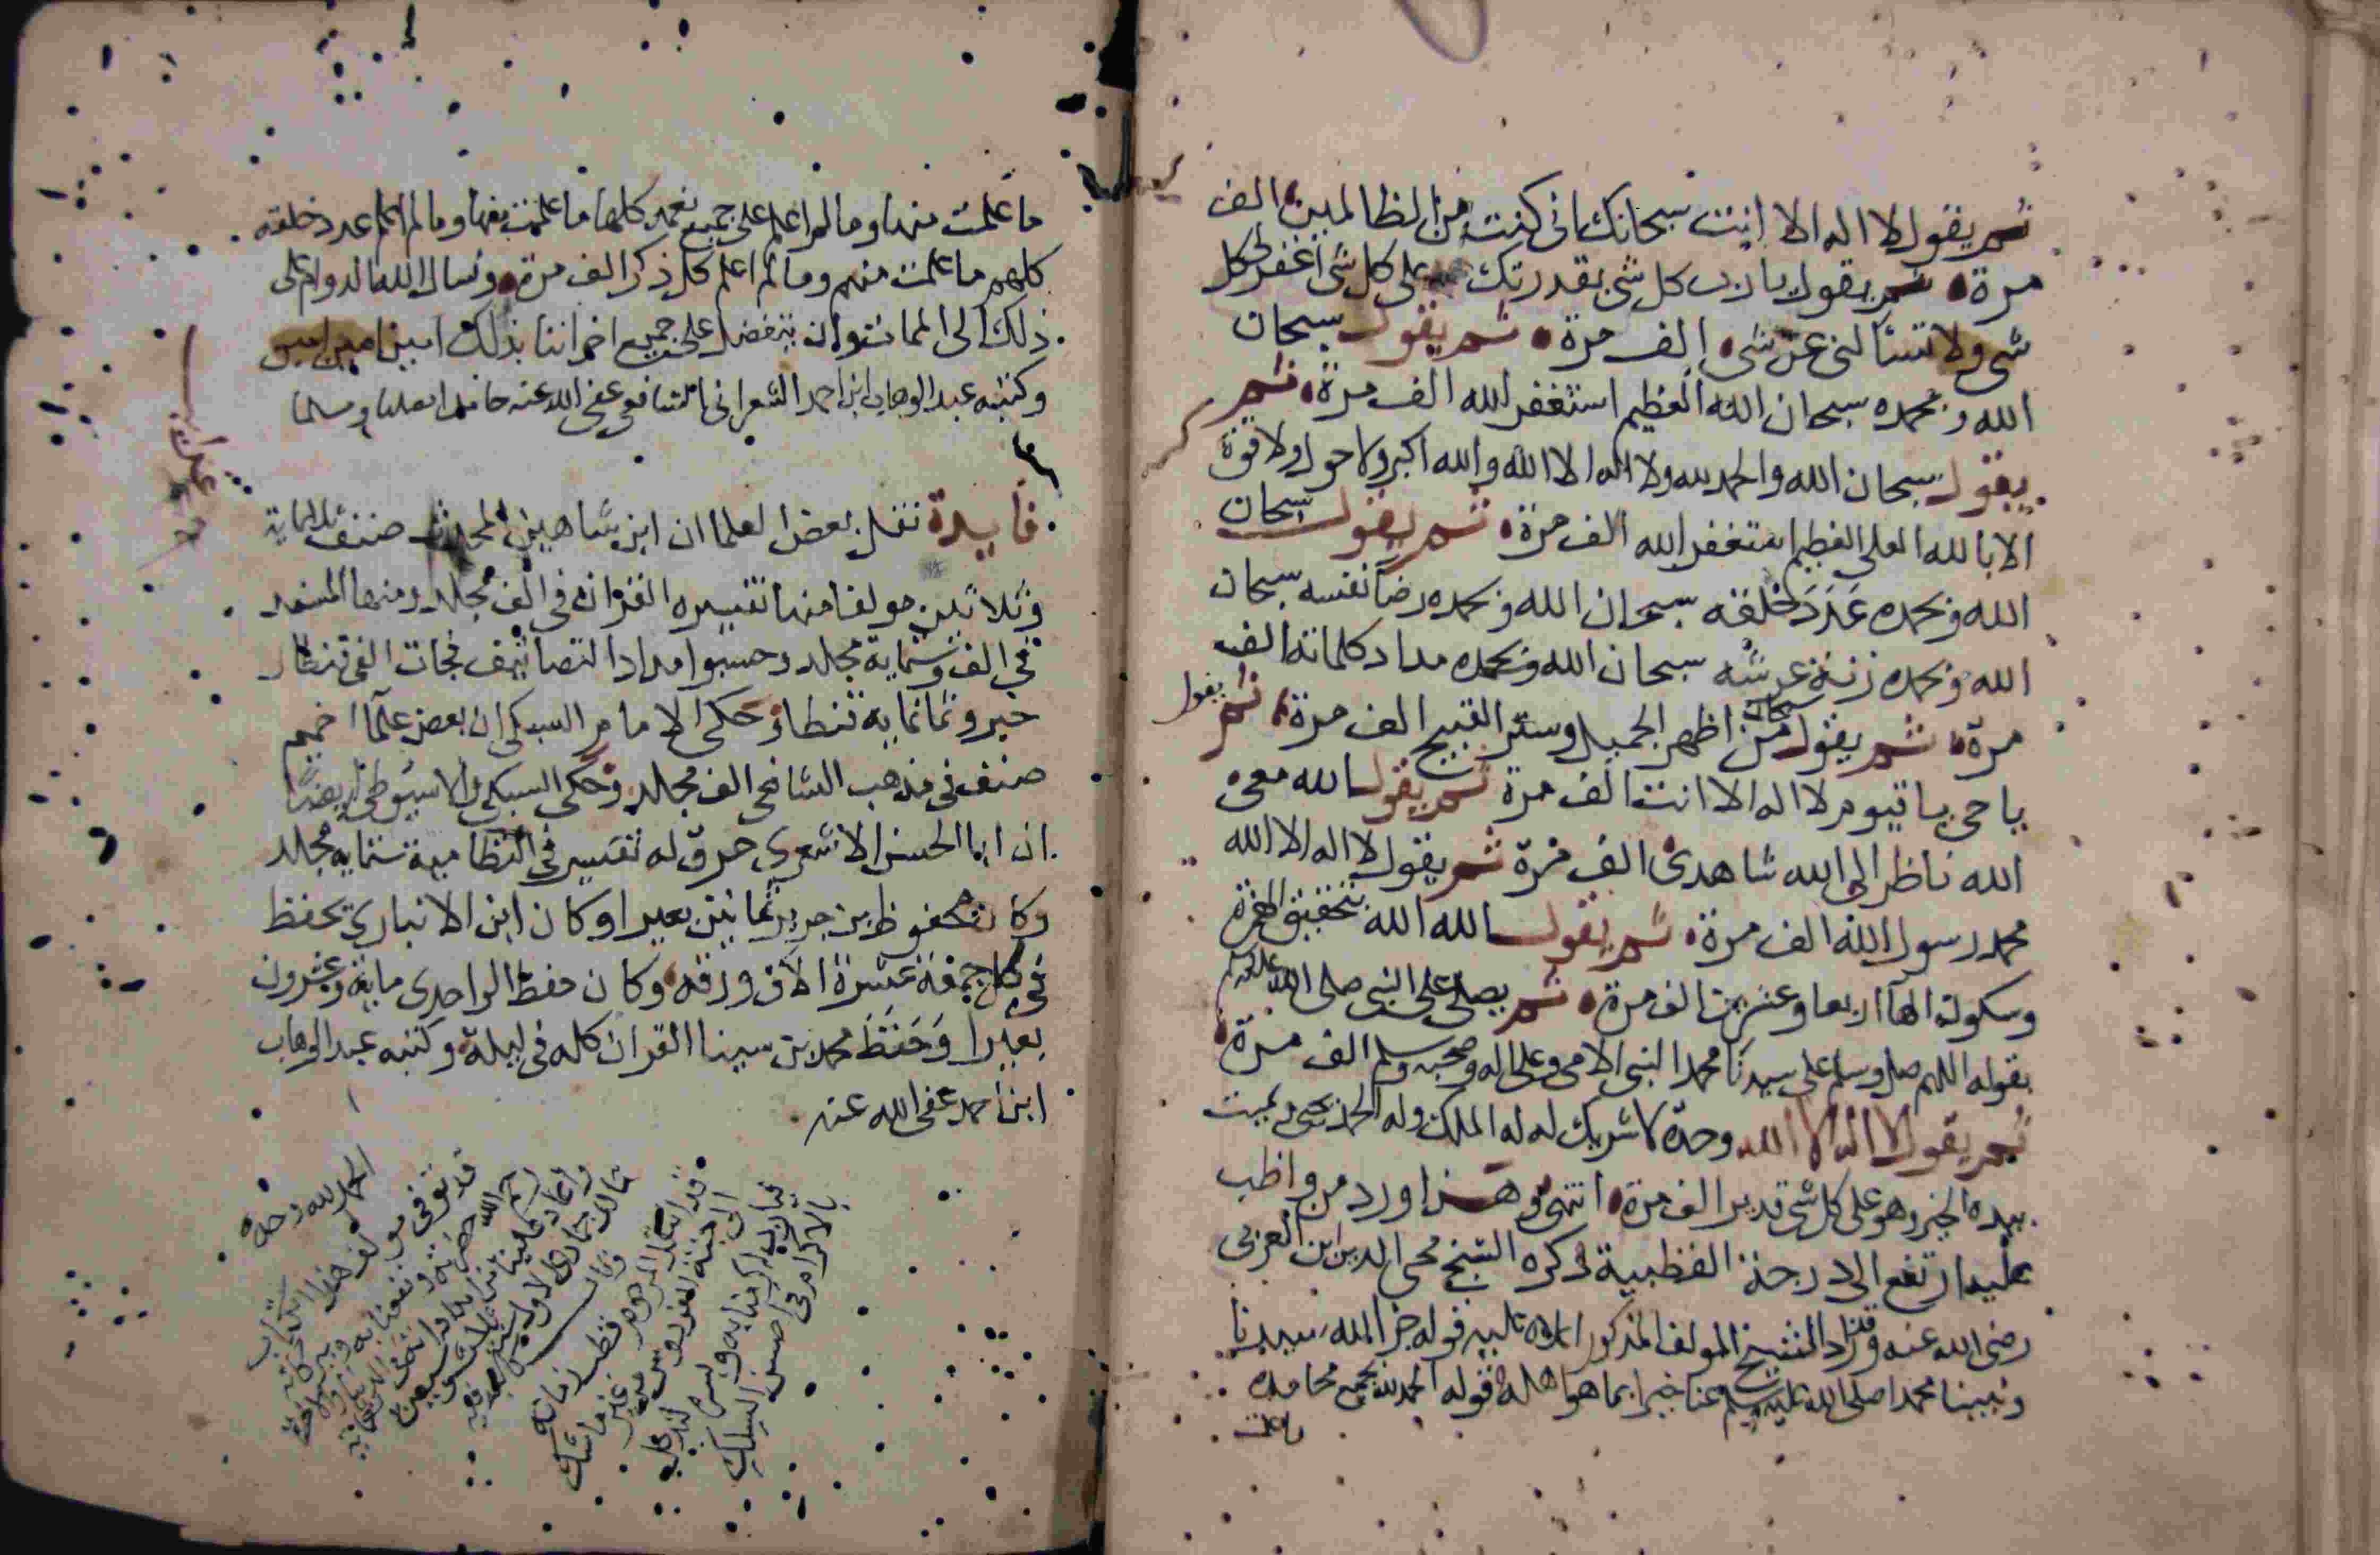 ثم يقول لا اله الا انت سبحانك انى كنت من الظالمين الف
مرة ثم يقول يا رب كل شى بقدرتك على كل شى اغفر لى كل
شى ولا تسالنى عن شى الف مرة ثم يقول سبحان
الله وبحمده سبحان الله العظيم استغفر الله الف مرة ثم
يقول سبحان الله والحمد لله ولا اله الا الله والله اكبر ولا حول ولا قوة
الا بالله العلى العظيم استغفر الله الف مرة ثم يقول سبحان
الله وبحمده عَدَدَ خلقه سبحان الله وبحمده رضا نفسه سبحان
الله وبحمده زنة عرشه سبحان الله وبحمده مداد كلماته الف
مرة ثم يقول سبحان من اظهر الجميل وستر القبيح الف مرة ثم يقول
يا حى يا قيوم لا اله الا انت الف مرة ثم يقول الله معى
الله ناظر الى الله شاهدى الف مرة ثم يقول لا اله الا الله
محمد رسول الله الف مرة ثم يقول الله الله بتحقيق الهمزة
وسكون الهآ اربعا وعشرين الف مرة ثم يصلى على النبى صلى الله عليه وسلم
بقوله اللهم صل وسلم على سيدنا محمد النبى الامى وعلى اله وصحبه وسلم الف مرة
ثم يقول لا اله الا الله وحده لا شريك له له الملك وله الحمد يحى ويميت
بيده الخير وهو على كل شى قدير الف مرة انتهى وهذا ورد من واظب
عليه ارتفع الى درجة القطبية ذكره الشيخ محى الدين ابن العربى
رضى الله عنه وقد زاد الشيخ المولف المذكور اعلاه قوله جزا الله سيدنا
ونبينا محمدا صلى الله عليه وسلم عنا خيرا بما هو اهله وقوله الحمد لله بجميع محامده
ما علمت
ما علمت منها وما لم اعلم على جميع نعمه كلها ما علمت منها وما لم اعلم عدد خلقه
كلهم ما علمت منهم وما لم اعلم كل ذكر الف مرة ونسال الله الدوام على
ذلك الى الممات وان يتفضل على جميع اخواننا بذلك امين امين امين
وكتبه عبد الوهاب ابن احمد الشعرانى الشافعى عفى الله عنه حامدا مصليا ومسلما
فايدة نقل بعض العلما ان ابن شاهين المحدث صنف ثلثماية
وثلاثين مولفا منها تفسيره القران فى الف مجلد ومنها المسند
فى الف وستماية مجلد وحسبوا مداد التصانيف فجات الفى قنطار
حبر وثمانماية قنطار وحكى الامام السبكى ان بعض علمآ اخميم
صنف فى مذهب الشافعى الف مجلد وحكى السبكى والاسيوطى ايضا
ان ابا الحسن الاشعرى حرق له تفسير فى النظامية ستماية مجلد
وكان محفوظ بن جرير ثمانين بعيرا وكان ابن الانبارى يحفظ
فى كل جمعة عشرة الاف ورقة وكان حفظ الواحدى ماية وعشرون
بعيرا وَحَفَظَ محمد بن سينا القران كله فى ليلة وكتبه عبد الوهاب
ابن احمد عفى الله عنه
الحمد لله وحده
قد توفى مولف هذا الكتاب